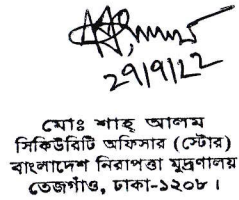 29/9/22
মোঃ শাহ্ আলম
সিকিউরিটি অফিসার (স্টোর)
বাংলাদেশ নিরাপত্তা মুদ্রণালয়
তেজগাঁও, ঢাকা-১২০৮ ।